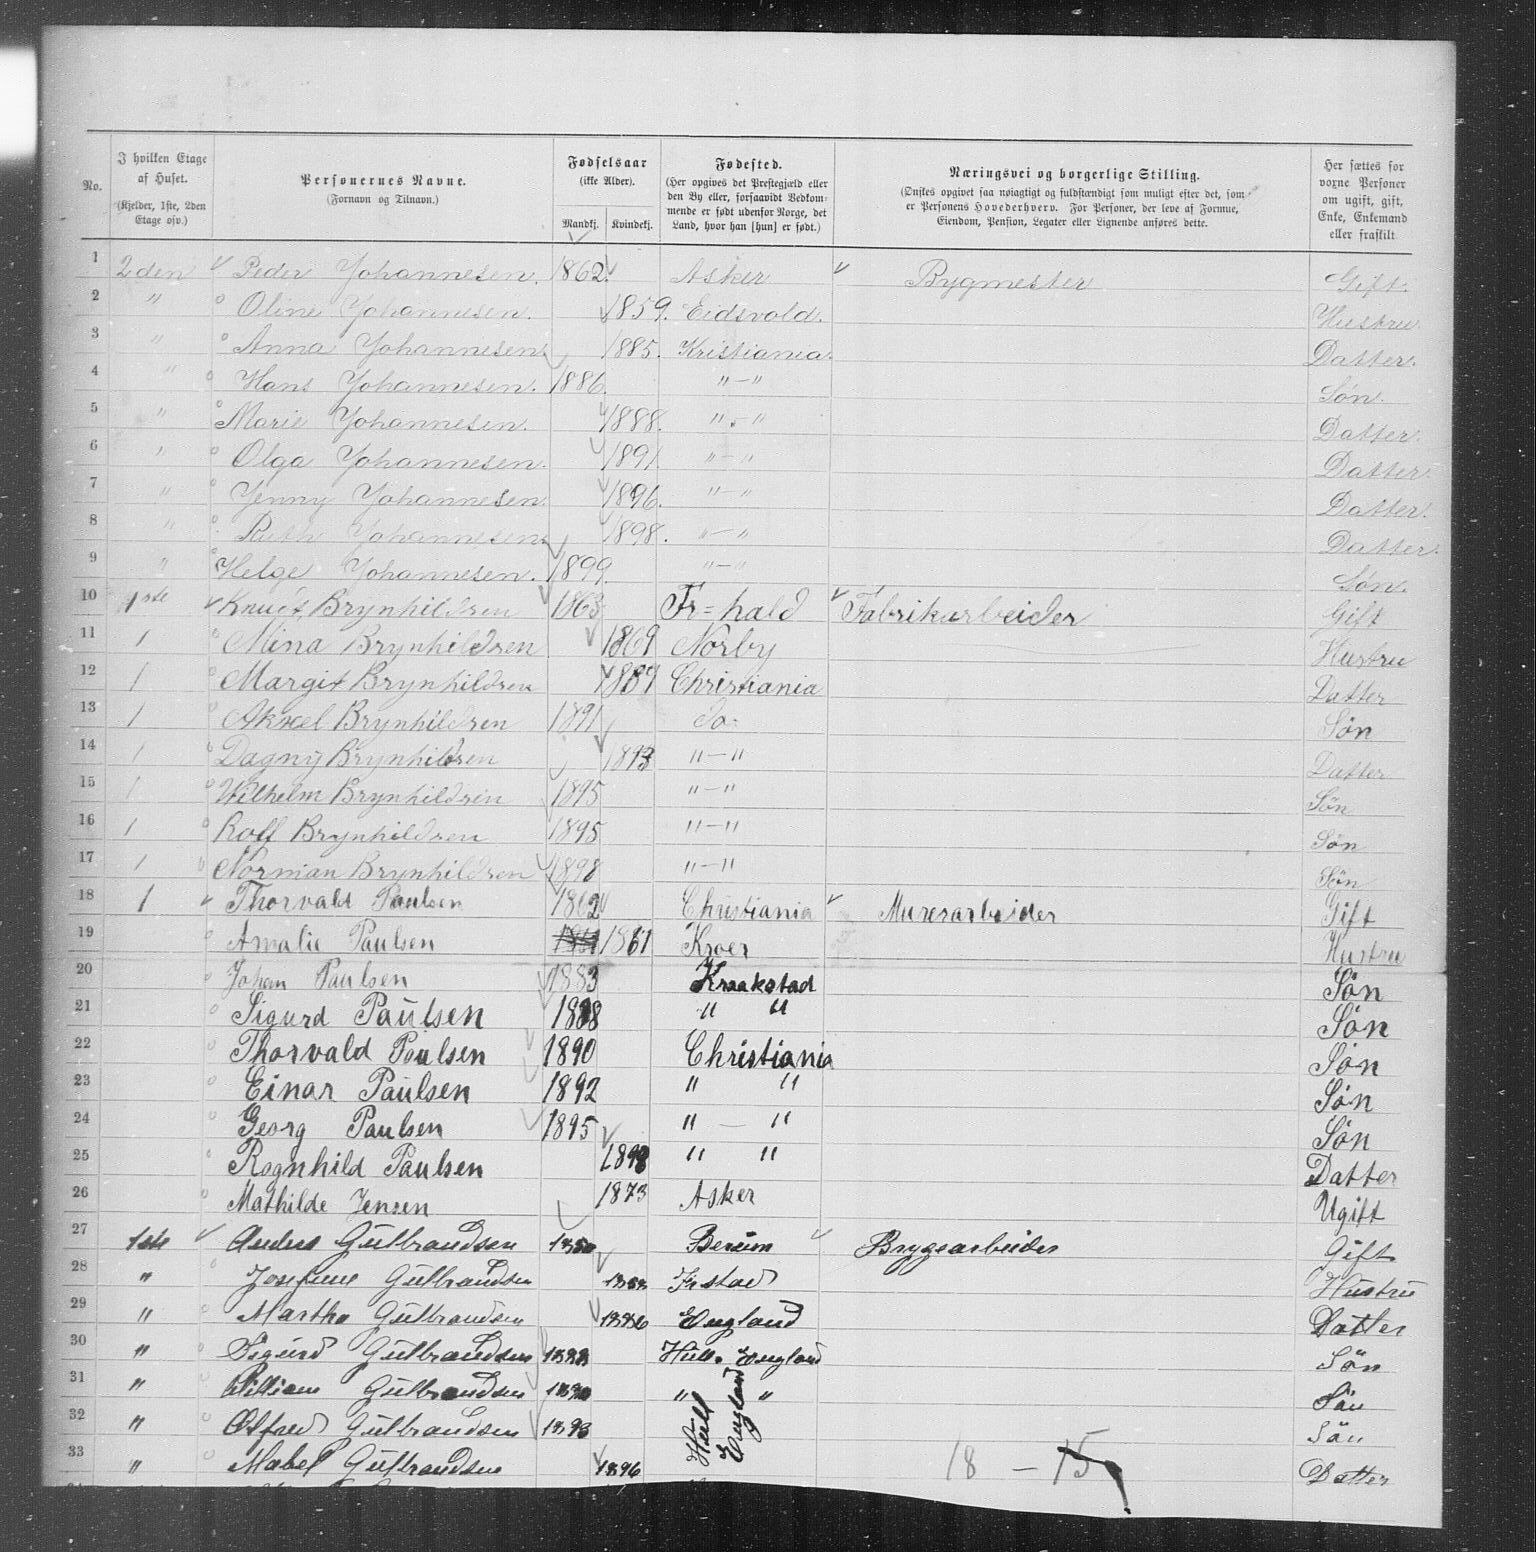 No.
I hvilken Etage af Huset. (Kjelder, 1ste, 2den Etage osv.)
Personernes Navne. (Fornavn og Tilnavn.)
Fødselsaar (ikke Alder). Mandkj. Kvindekj.
Fødested. (Her opgives det Præstegjæld eller den By eller, forsaavidt Vedkommende er født udenfor Norge, det Land, hvor han [hun] er født.)
Næringsvei og borgerlige Stilling. (Ønskes opgivet saa nøiagtigt og fuldstændigt som muligt efter det, som er Personens Hovederhverv. For Personer, der leve af Formue, Eiendom, Pension, Legater eller Lignende anføres dette.
Her sættes for voxne Personer om ugift, gift, Enke, Enkemand eller fraskilt
1 2den Peder Johannesen. 1862. Asker Bygmester Gift.
2 " Oline Johannesen. 1859. Eidsvold. Hustru
3 " Anna Johannesen. 1885. Kristiania. Datter.
4 " Hans Johannesen. 1886. "-" Søn.
5 " Marie Johannesen. 1888. "-" Datter.
6 " Olga Johannesen. 1891 "-" Datter.
7 " Jenny Johannesen. 1896. "-" Datter.
8 " Ruth Johannesen. 1898. "-" Datter.
9 " Helge Johannesen. 1899. "-" Søn.
10 1ste Knudt Brynhildsen 1863 Fr=hald Fabrikarbeider Gift
11 1 Mina Brynhildsen 1869 Norby Hustru
12 1 Margit Brynhildsen 1889 Christiania Datter
13 1 Aksel Brynhildsen 1891 Do- Søn
14 1 Dagny Brynhildsen 1893 "-" Datter
15 1 Wilhelm Brynhildsen 1895 "-" Søn
16 1 Rolf Brynhildsen 1895 "-" Søn
17 1 Norman Brynhildsen 1898 "-" Søn
18 1 Thorvald Paulsen 1862 Christiania Murerarbeider Gift
19 Amalie Paulsen 1861 Kroer Hustru
20 Johan Paulsen 1883 Kraakstad Søn
21 Sigurd Paulsen 1888 " " Søn
22 Thorvald Paulsen 1890 Christiania Søn
23 Einar Paulsen 1892 " " Søn
24 Georg Paulsen 1895 " - " Søn
25 Ragnhild Paulsen 1898 " " Datter
26 Mathilde Jensen 1873 Asker Ugift
27 1ste Anders Gulbrandsen 1850 Berum Bryggearbeider Gift
28 " Josefine Gulbrandsen Frstad Hustru
29 " Martha Gulbrandsen 1886 England Datter
30 " Sigurd Gulbrandsen 1888 Hull. England Søn
31 " William Gulbrandsen 1890 " " Søn
32 " Alfred Gulbrandsen 1893 Hull England Søn
33 " Mabel Gulbrandsen 1896 Datter
18 - 15